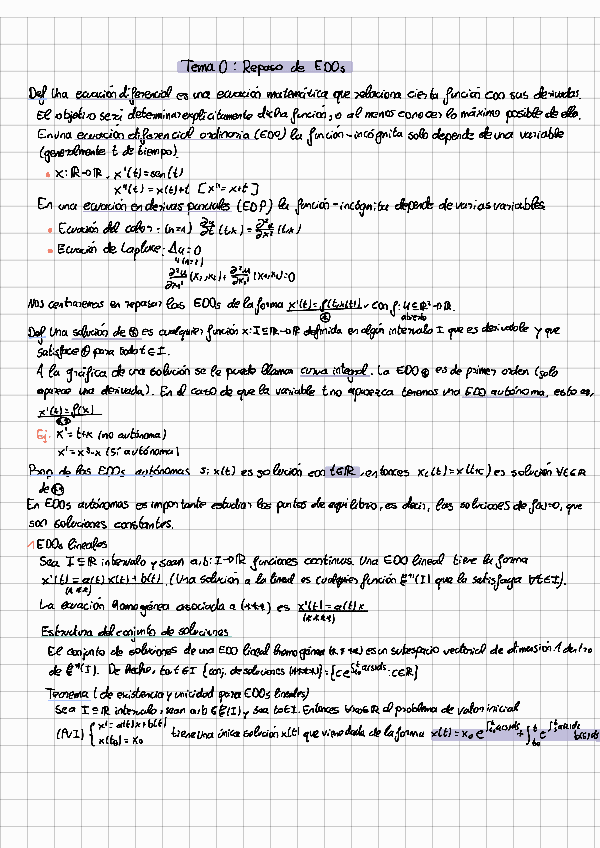 Tema 0: Repaso de EDOs
Def Una ecuación diferencial es una ecuación matemática que relaciona cierta función con sus derivadas.
El objetivo será determinar explícitamente dicha función, o al menos conocer lo máximo posible de ella.
En una ecuación diferencial ordinaria (EDO) la función-incógnita solo depende de una variable
(generalmente t de tiempo).
• x: ℝ→ℝ, x'(t)=sen(t)
x''(t) = x(t)+t [x''=x+t]
En una ecuación en derivas parciales (EDP) la función-incógnita depende de varias variables
• Ecuación del calor: (n=1) ∂u/∂t (t,x) = ∂²u/∂x² (t,x)
• Ecuación de Laplace: Δu=0
∂²u/∂x₁² (x₁,x₂) + ∂²u/∂x₂² (x₁,x₂)=0
Nos centraremos en repasar las EDOs de la forma x'(t)=f(t,x(t)), con f: U⊆ℝ²→ℝ.
abierto
Def Una solución de ⊛ es cualquier función x: I⊆ℝ→ℝ definida en algún intervalo I que es derivable y que
satisface ⊛ para todo t∈I.
A la gráfica de una solución se le puede llamar curva integral. La EDO ⊛ es de primer orden (solo
aparece una derivada). En el caso de que la variable t no aparezca tenemos una EDO autónoma, esto es,
x'(t)=f(x)
Ej: x'=t+x (no autónoma)
x'=x³-x (sí autónoma)
Prop de las EDOs autónomas Si x(t) es solución con t∈ℝ, entonces x_c(t)=x(t+c) es solución ∀c∈ℝ
de
En EDOs autónomas es importante estudiar los puntos de equilibrio, es decir, las soluciones de f(x)=0, que
son soluciones constantes.
EDOs lineales
Sea I⊆ℝ intervalo y sean a,b: I→ℝ funciones continuas. Una EDO lineal tiene la forma
x'(t)=a(t)x(t)+b(t). (Una solución a la lineal es cualquier función C¹(I) que la satisfaga ∀t∈I).
(***)
La ecuación homogénea asociada a (***) es x'(t)=a(t)x
(****)
Estructura del conjunto de soluciones
El conjunto de soluciones de una EDO lineal homogénea (****) es un subespacio vectorial de dimensión 1 dentro
de C¹(I). De hecho, t₀∈I {conj. de soluciones (****)}={c e^{∫_{t₀}^{t} a(s)ds} : c∈ℝ}
Teorema (de existencia y unicidad para EDOs lineales)
Sea I⊆ℝ intervalo, sean a,b∈C(I) y sea t₀∈I. Entonces ∀x₀∈ℝ el problema de valor inicial
(PVI) { x'=a(t)x+b(t) x(t₀)=x₀ tiene una única solución x(t) que viene dada de la forma x(t)=x₀ e^{∫_{t₀}^{t} a(s)ds} + ∫_{t₀}^{t} e^{∫_{s}^{t} a(r)dr} b(s)ds